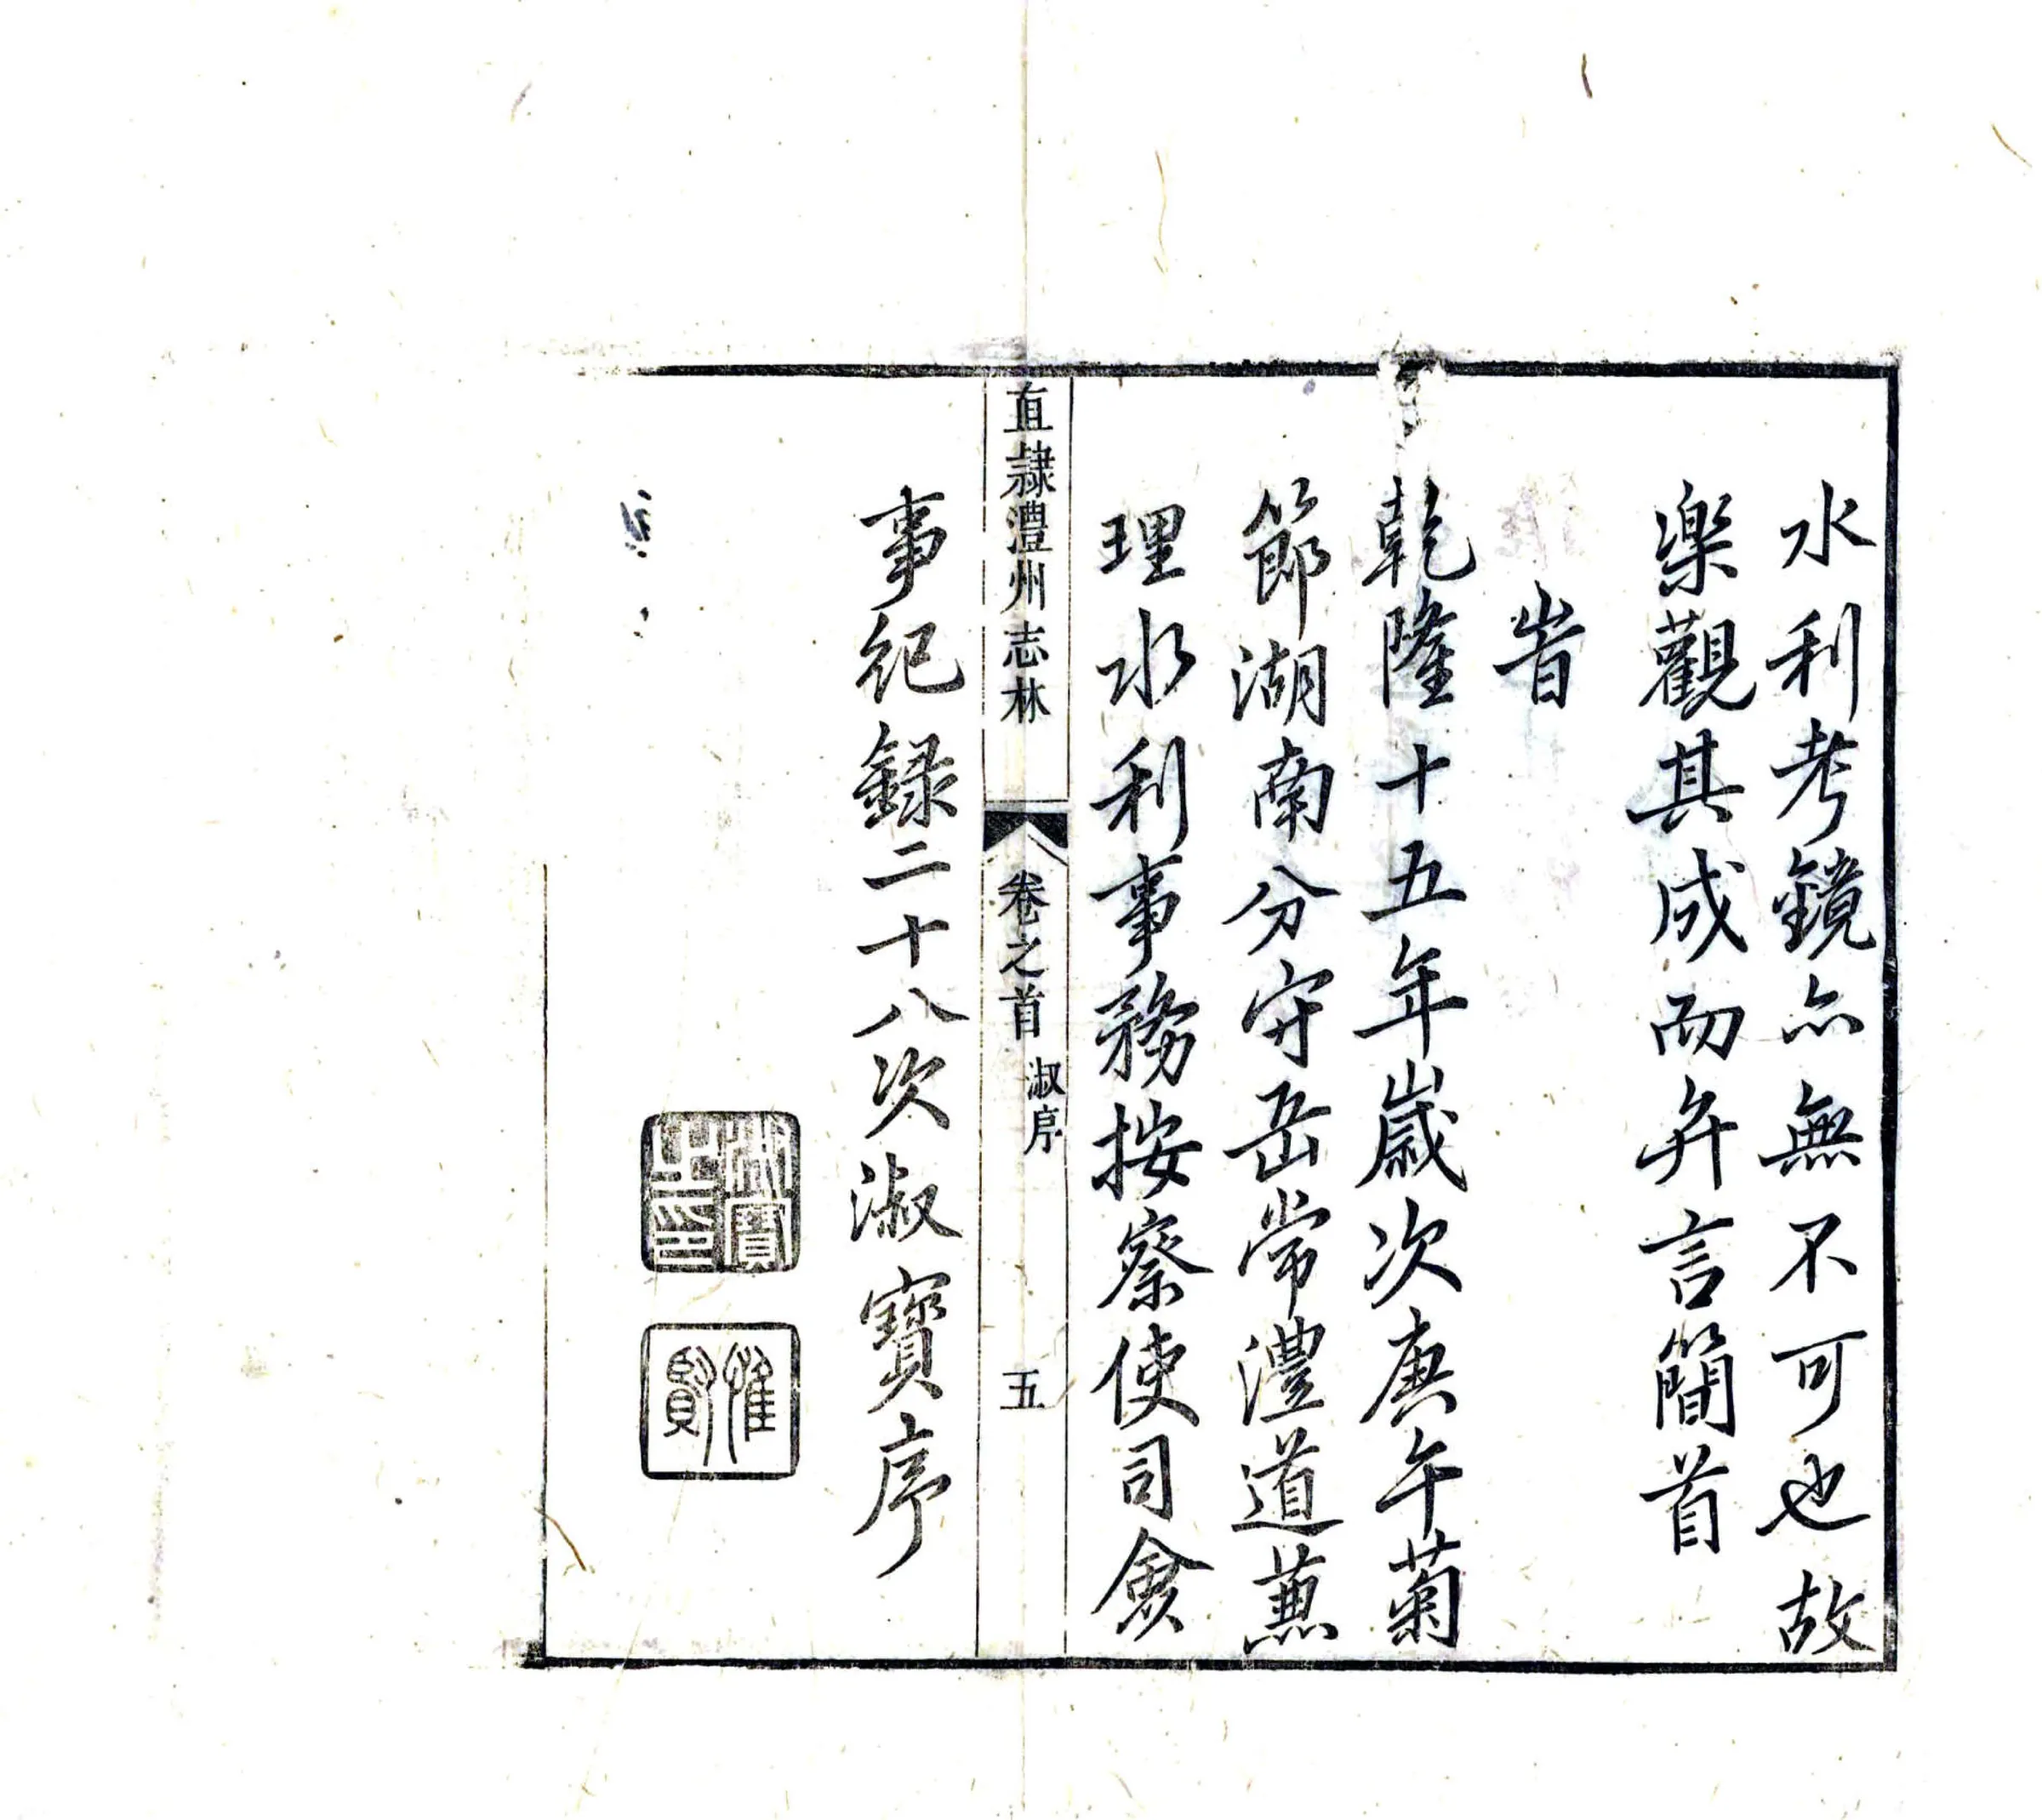 水利考鏡亦無不可也故
樂觀其成而弁言簡首
旹
乾隆十五年歲次庚午菊
節湖南分守岳常澧道兼
理水利事務按察使司僉
直隷澧州志林 卷之首 淑序 五
事紀錄二十八次淑寶序
淑寶之印
惟賢